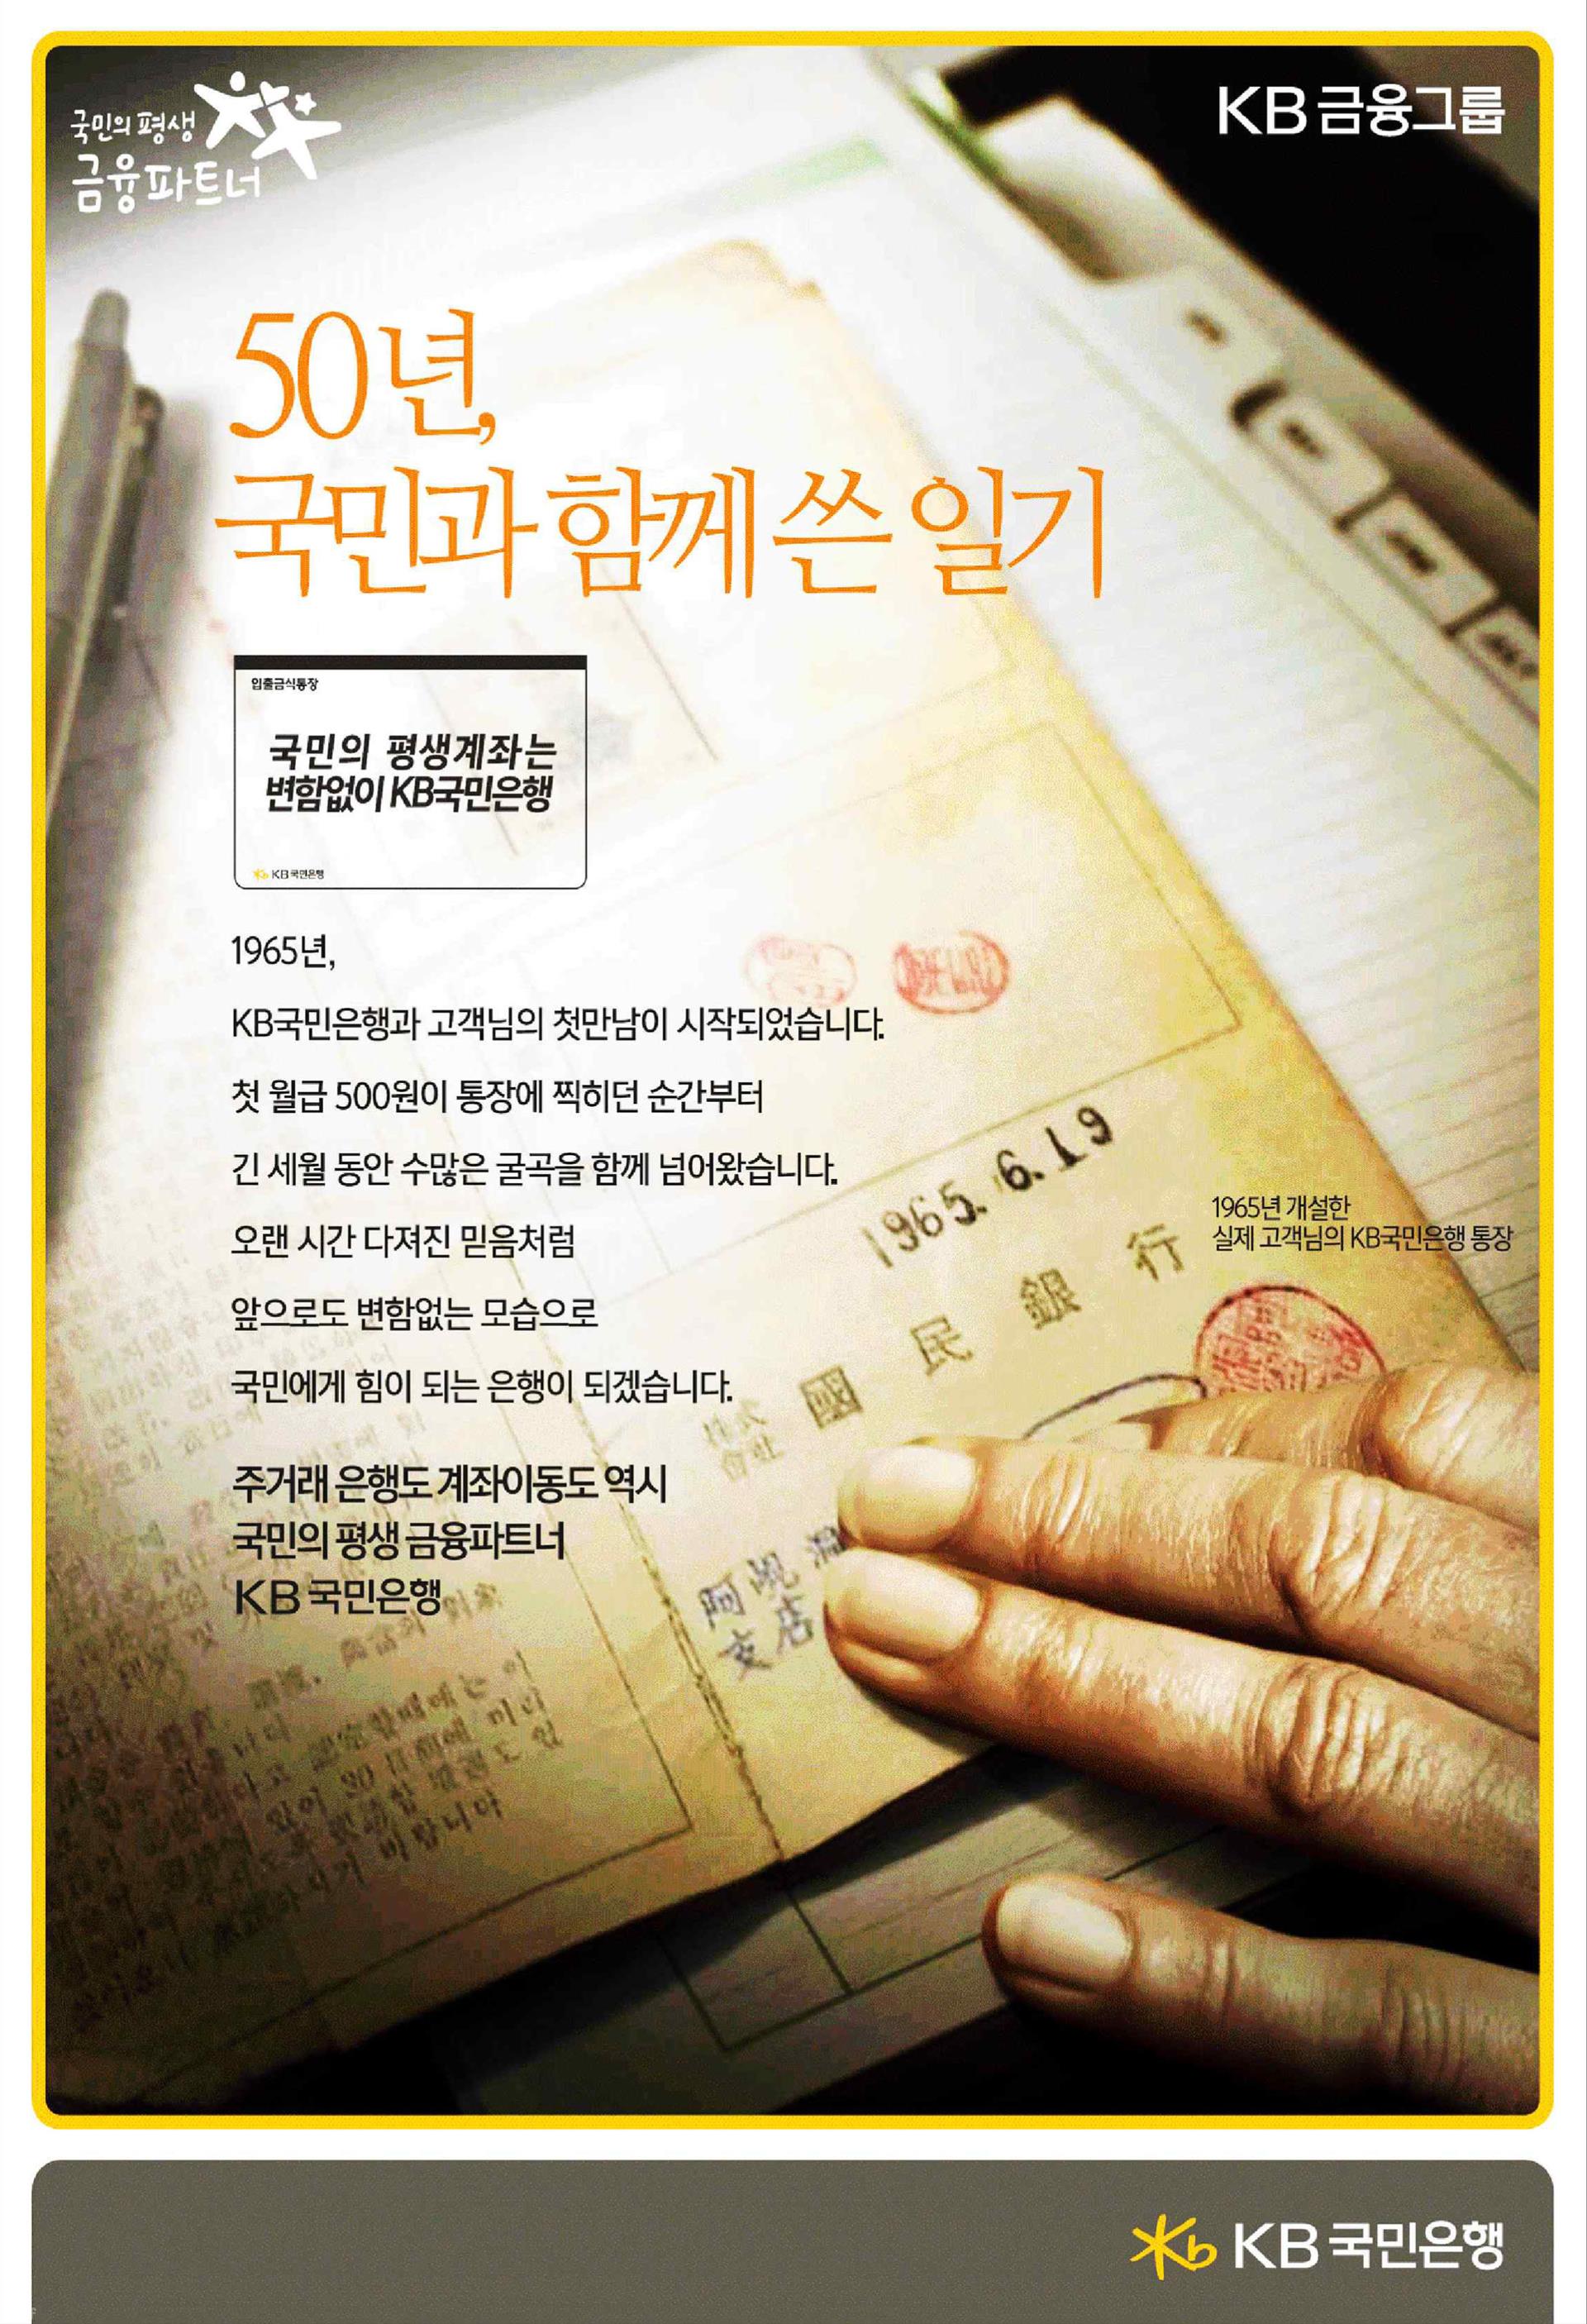 국민의 평생
금융파트너
KB금융그룹
50년,
국민과 함께 쓴 일기
입출금식통장
국민의 평생계좌는
변함없이 KB국민은행
KB국민은행
1965년,
KB국민은행과 고객님의 첫만남이 시작되었습니다.
첫 월급 500원이 통장에 찍히던 순간부터
긴 세월 동안 수많은 굴곡을 함께 넘어왔습니다.
오랜 시간 다져진 믿음처럼
앞으로도 변함없는 모습으로
국민에게 힘이 되는 은행이 되겠습니다.
주거래 은행도 계좌이동도 역시
국민의 평생 금융파트너
KB국민은행
1965. 6. 19
國民銀行
阿峴
支店
1965년 개설한
실제 고객님의 KB국민은행 통장
KB국민은행